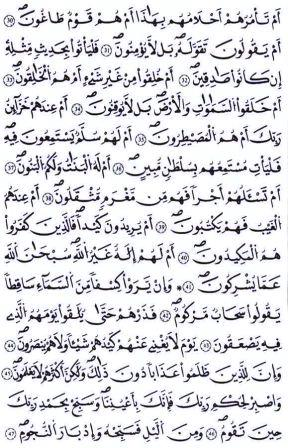 أَمْ تَأْمُرُهُمْ أَحْلَامُهُم بِهَٰذَا أَمْ هُمْ قَوْمٌ طَاغُونَ ﴿٣٠﴾
أَمْ يَقُولُونَ تَقَوَّلَهُ بَل لَّا يُؤْمِنُونَ ﴿٣١﴾ فَلْيَأْتُوا بِحَدِيثٍ مِّثْلِهِ
إِن كَانُوا صَادِقِينَ ﴿٣٢﴾ أَمْ خُلِقُوا مِنْ غَيْرِ شَيْءٍ أَمْ هُمُ الْخَالِقُونَ ﴿٣٣﴾
أَمْ خَلَقُوا السَّمَاوَاتِ وَالْأَرْضَ بَل لَّا يُوقِنُونَ ﴿٣٤﴾ أَمْ عِندَهُمْ خَزَائِنُ
رَبِّكَ أَمْ هُمُ الْمُصَيْطِرُونَ ﴿٣٥﴾ أَمْ لَهُمْ سُلَّمٌ يَسْتَمِعُونَ فِيهِ
فَلْيَأْتِ مُسْتَمِعُهُم بِسُلْطَانٍ مُّبِينٍ ﴿٣٦﴾ أَمْ لَهُ الْبَنَاتُ وَلَكُمُ الْبَنُونَ ﴿٣٧﴾
أَمْ تَسْأَلُهُمْ أَجْرًا فَهُم مِّن مَّغْرَمٍ مُّثْقَلُونَ ﴿٣٨﴾ أَمْ عِندَهُمُ
الْغَيْبُ فَهُمْ يَكْتُبُونَ ﴿٣٩﴾ أَمْ يُرِيدُونَ كَيْدًا فَالَّذِينَ كَفَرُوا
هُمُ الْمَكِيدُونَ ﴿٤٠﴾ أَمْ لَهُمْ إِلَٰهٌ غَيْرُ اللَّهِ سُبْحَانَ اللَّهِ
عَمَّا يُشْرِكُونَ ﴿٤١﴾ وَإِن يَرَوْا كِسْفًا مِّنَ السَّمَاءِ سَاقِطًا
يَقُولُوا سَحَابٌ مَّرْكُومٌ ﴿٤٢﴾ فَذَرْهُمْ حَتَّىٰ يُلَاقُوا يَوْمَهُمُ الَّذِي
فِيهِ يُصْعَقُونَ ﴿٤٣﴾ يَوْمَ لَا يُغْنِي عَنْهُمْ كَيْدُهُمْ شَيْئًا وَلَا هُمْ يُنصَرُونَ ﴿٤٤﴾
وَإِنَّ لِلَّذِينَ ظَلَمُوا عَذَابًا دُونَ ذَٰلِكَ وَلَٰكِنَّ أَكْثَرَهُمْ لَا يَعْلَمُونَ ﴿٤٥﴾
وَاصْبِرْ لِحُكْمِ رَبِّكَ فَإِنَّكَ بِأَعْيُنِنَا وَسَبِّحْ بِحَمْدِ رَبِّكَ
حِينَ تَقُومُ ﴿٤٦﴾ وَمِنَ اللَّيْلِ فَسَبِّحْهُ وَإِدْبَارَ النُّجُومِ ﴿٤٧﴾